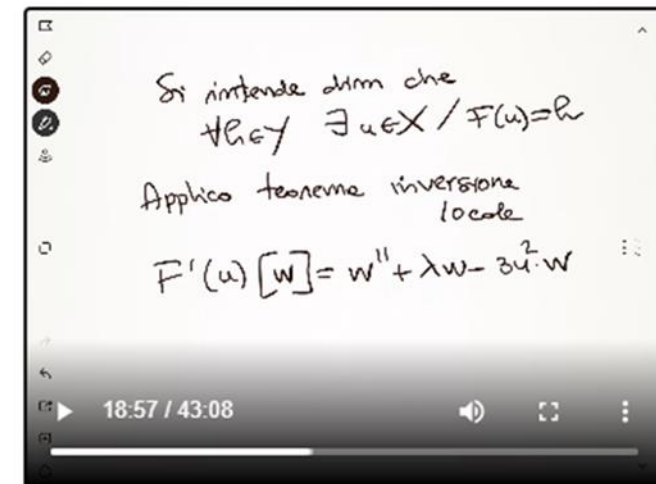 Si intende dim che
∀h∈Y ∃u∈X / F(u)=h
Applico teorema inversione
locale
F'(u)[w]= w''+λw-3u²·w
18:57 / 43:08